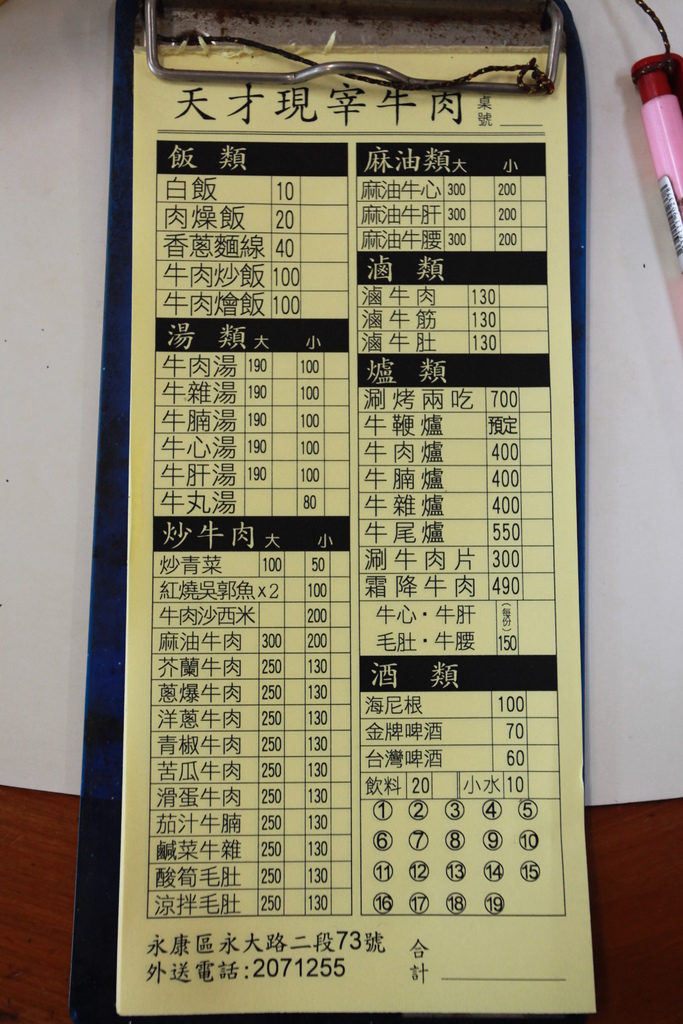 天才現宰牛肉 桌號
飯 類
白飯 10
肉燥飯 20
香蔥麵線 40
牛肉炒飯 100
牛肉燴飯 100
湯 類 大 小
牛肉湯 190 100
牛雜湯 190 100
牛腩湯 190 100
牛心湯 190 100
牛肝湯 190 100
牛丸湯 80
炒牛肉 大 小
炒青菜 100 50
紅燒吳郭魚x2 100
牛肉沙西米 200
麻油牛肉 300 200
芥蘭牛肉 250 130
蔥爆牛肉 250 130
洋蔥牛肉 250 130
青椒牛肉 250 130
苦瓜牛肉 250 130
滑蛋牛肉 250 130
茄汁牛腩 250 130
鹹菜牛雜 250 130
酸筍毛肚 250 130
涼拌毛肚 250 130
麻油類 大 小
麻油牛心 300 200
麻油牛肝 300 200
麻油牛腰 300 200
滷 類
滷牛肉 130
滷牛筋 130
滷牛肚 130
爐 類
涮烤兩吃 700
牛鞭爐 預定
牛肉爐 400
牛腩爐 400
牛雜爐 400
牛尾爐 550
涮牛肉片 300
霜降牛肉 490
牛心・牛肝 (每份)
毛肚・牛腰 150
酒 類
海尼根 100
金牌啤酒 70
台灣啤酒 60
飲料 20 小水 10
① ② ③ ④ ⑤
⑥ ⑦ ⑧ ⑨ ⑩
⑪ ⑫ ⑬ ⑭ ⑮
⑯ ⑰ ⑱ ⑲
永康區永大路二段73號
外送電話:2071255
合計